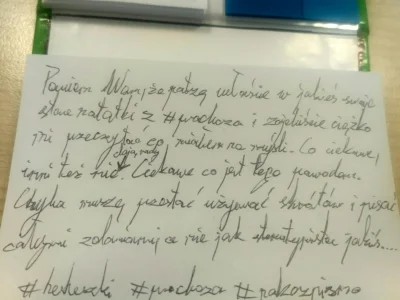 Powiem Wam, że patrzę właśnie w jakieś swoje
stare notatki z #prochoza i zajebiście ciężko
mi przeczytać co miałem na myśli. Co ciekawe,
dają radę
inni też nie. Ciekawe co jest tego powodem.
Chyba muszę przestać używać skrótów i pisać
całymi zdaniami, a nie jak stenotypista jakiś....
#heheszki #prochoza #pokazpismo